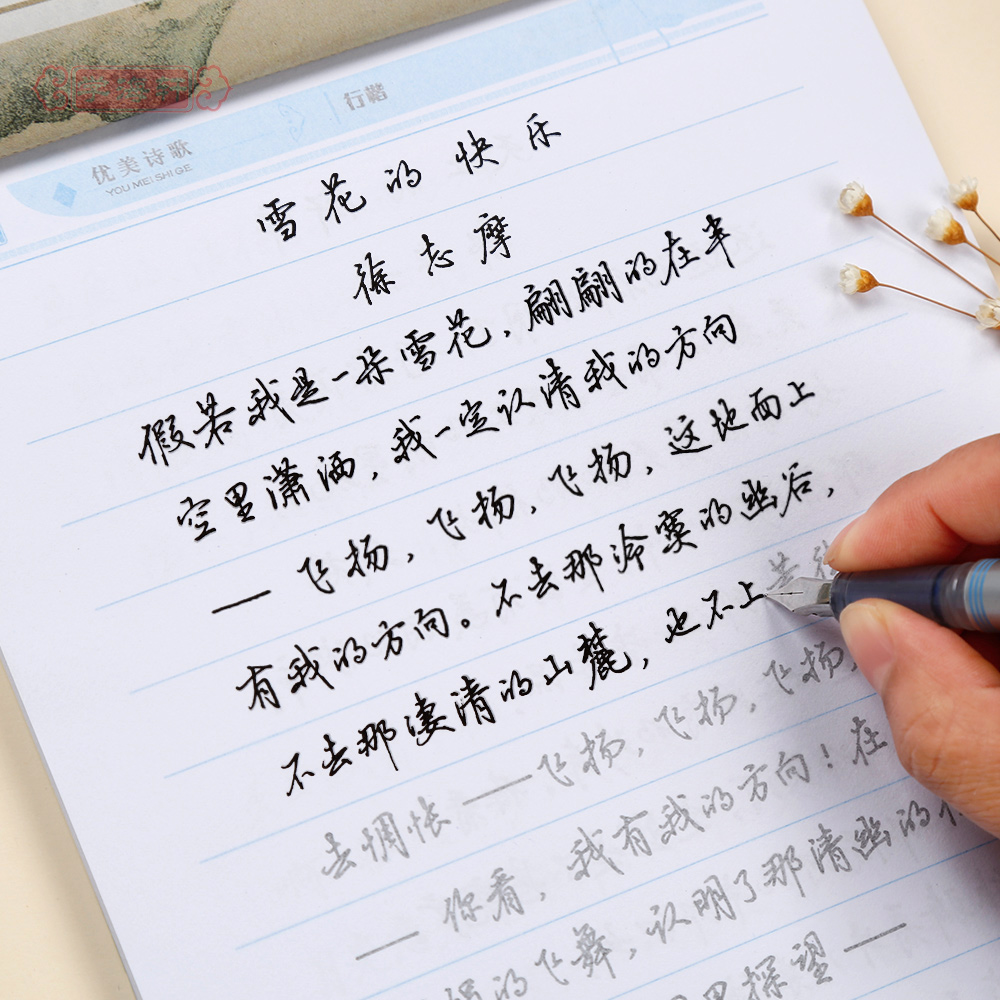 优美诗歌
YOU MEI SHI GE
行楷
雪花的快乐
徐志摩
假若我是一朵雪花，翩翩的在半
空里潇洒，我一定认清我的方向
——飞扬，飞扬，飞扬，这地面上
有我的方向。不去那冷寞的幽谷，
不去那凄清的山麓，也不上荒街
去惆怅——飞扬，飞扬，飞扬，
——你看，我有我的方向！在
的飞舞，认明了那清幽的住
里探望——